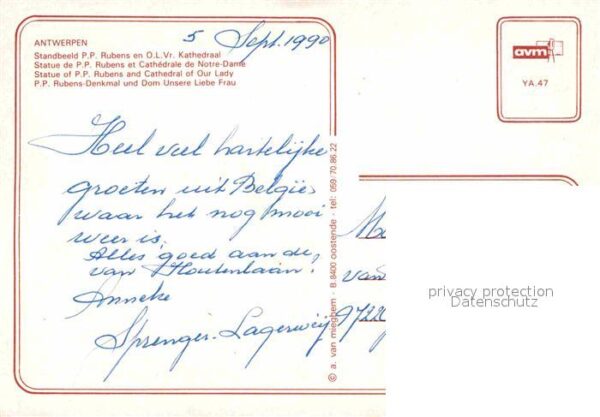 5 Sept. 1990
ANTWERPEN
Standbeeld P.P. Rubens en O.L.Vr. Kathedraal
Statue de P.P. Rubens et Cathédrale de Notre-Dame
Statue of P.P. Rubens and Cathedral of Our Lady
P.P. Rubens-Denkmal und Dom Unsere Liebe Frau
avm
YA.47
Heel veel hartelijke
groeten uit België
waar het nog mooi
weer is.
Alles goed aan de
van Houtenlaan?
Anneke
Sprenger-Lagerweij
© a. van mieghem - B.8400 oostende - tel: 059.70.86.22
van
9722
privacy protection
Datenschutz